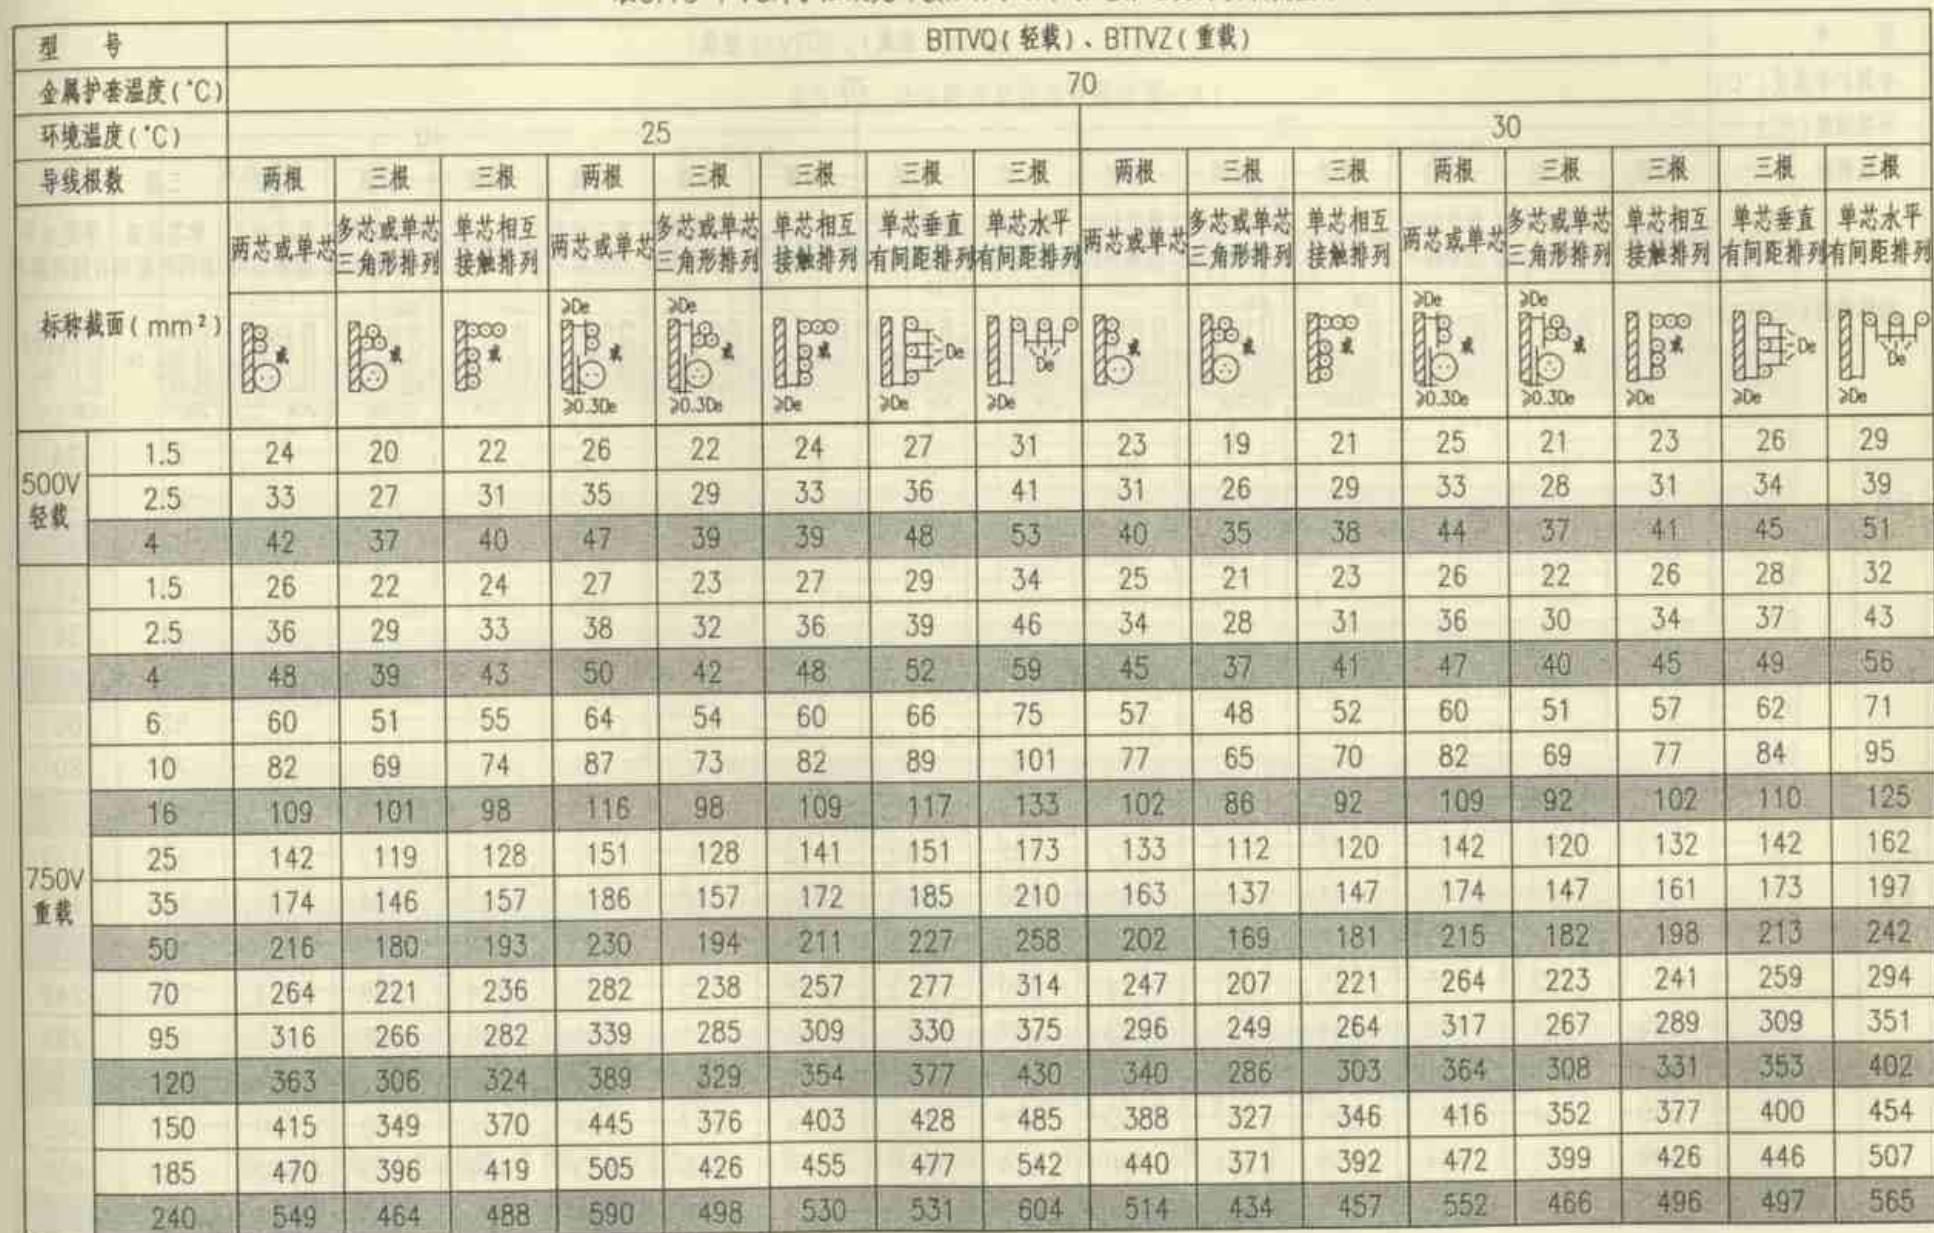 型 号 BTTVQ(轻载)、BTTVZ(重载)
金属护套温度(°C) 70
环境温度(°C) 25 30
导线根数 两根 三根 三根 两根 三根 三根 三根 三根 两根 三根 三根 两根 三根 三根 三根 三根
标称截面(mm²) 两芯或单芯 多芯或单芯三角形排列 单芯相互接触排列 两芯或单芯 多芯或单芯三角形排列 单芯相互接触排列 单芯垂直有间距排列 单芯水平有间距排列 两芯或单芯 多芯或单芯三角形排列 单芯相互接触排列 两芯或单芯 多芯或单芯三角形排列 单芯相互接触排列 单芯垂直有间距排列 单芯水平有间距排列
≥De ≥De ≥De ≥De
或 或 或 或 或 或 De De 或 或 或 或 或 或 De De
≥0.3De ≥0.3De ≥De ≥De ≥De ≥0.3De ≥0.3De ≥De ≥De ≥De
500V轻载
1.5 24 20 22 26 22 24 27 31 23 19 21 25 21 23 26 29
2.5 33 27 31 35 29 33 36 41 31 26 29 33 28 31 34 39
4 42 37 40 47 39 39 48 53 40 35 38 44 37 41 45 51
750V重载
1.5 26 22 24 27 23 27 29 34 25 21 23 26 22 26 28 32
2.5 36 29 33 38 32 36 39 46 34 28 31 36 30 34 37 43
4 48 39 43 50 42 48 52 59 45 37 41 47 40 45 49 56
6 60 51 55 64 54 60 66 75 57 48 52 60 51 57 62 71
10 82 69 74 87 73 82 89 101 77 65 70 82 69 77 84 95
16 109 101 98 116 98 109 117 133 102 86 92 109 92 102 110 125
25 142 119 128 151 128 141 151 173 133 112 120 142 120 132 142 162
35 174 146 157 186 157 172 185 210 163 137 147 174 147 161 173 197
50 216 180 193 230 194 211 227 258 202 169 181 215 182 198 213 242
70 264 221 236 282 238 257 277 314 247 207 221 264 223 241 259 294
95 316 266 282 339 285 309 330 375 296 249 264 317 267 289 309 351
120 363 306 324 389 329 354 377 430 340 286 303 364 308 331 353 402
150 415 349 370 445 376 403 428 485 388 327 346 416 352 377 400 454
185 470 396 419 505 426 455 477 542 440 371 392 472 399 426 446 507
240 549 464 488 590 498 530 531 604 514 434 457 552 466 496 497 565